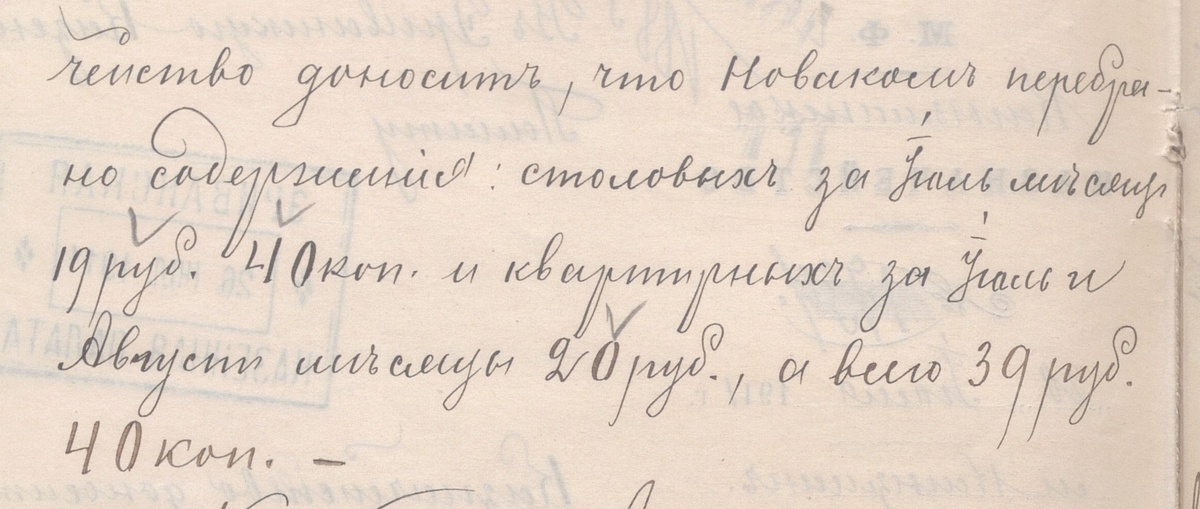 чейство доноситъ, что Новакомъ перебра-
но содержанія: столовыхъ за Іюль мѣсяцъ
19 руб. 40 коп. и квартирныхъ за Іюль и
Августъ мѣсяцы 20 руб., а всего 39 руб.
40 коп. —